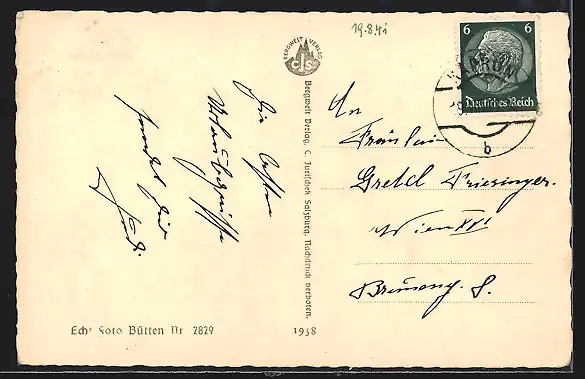 19.8.41
BERGWELT VERLAG
CJS
6 6
Deutsches Reich
KAPRUN
b
Die besten
Urlaubsgrüße
sendet Dir
An
Fräulein
Gretel Friesinger.
Wien XVI
Bergwelt Verlag, C. Jurischek Salzburg. Nachdruck verboten.
Echt Foto Bütten Nr 2829
1938